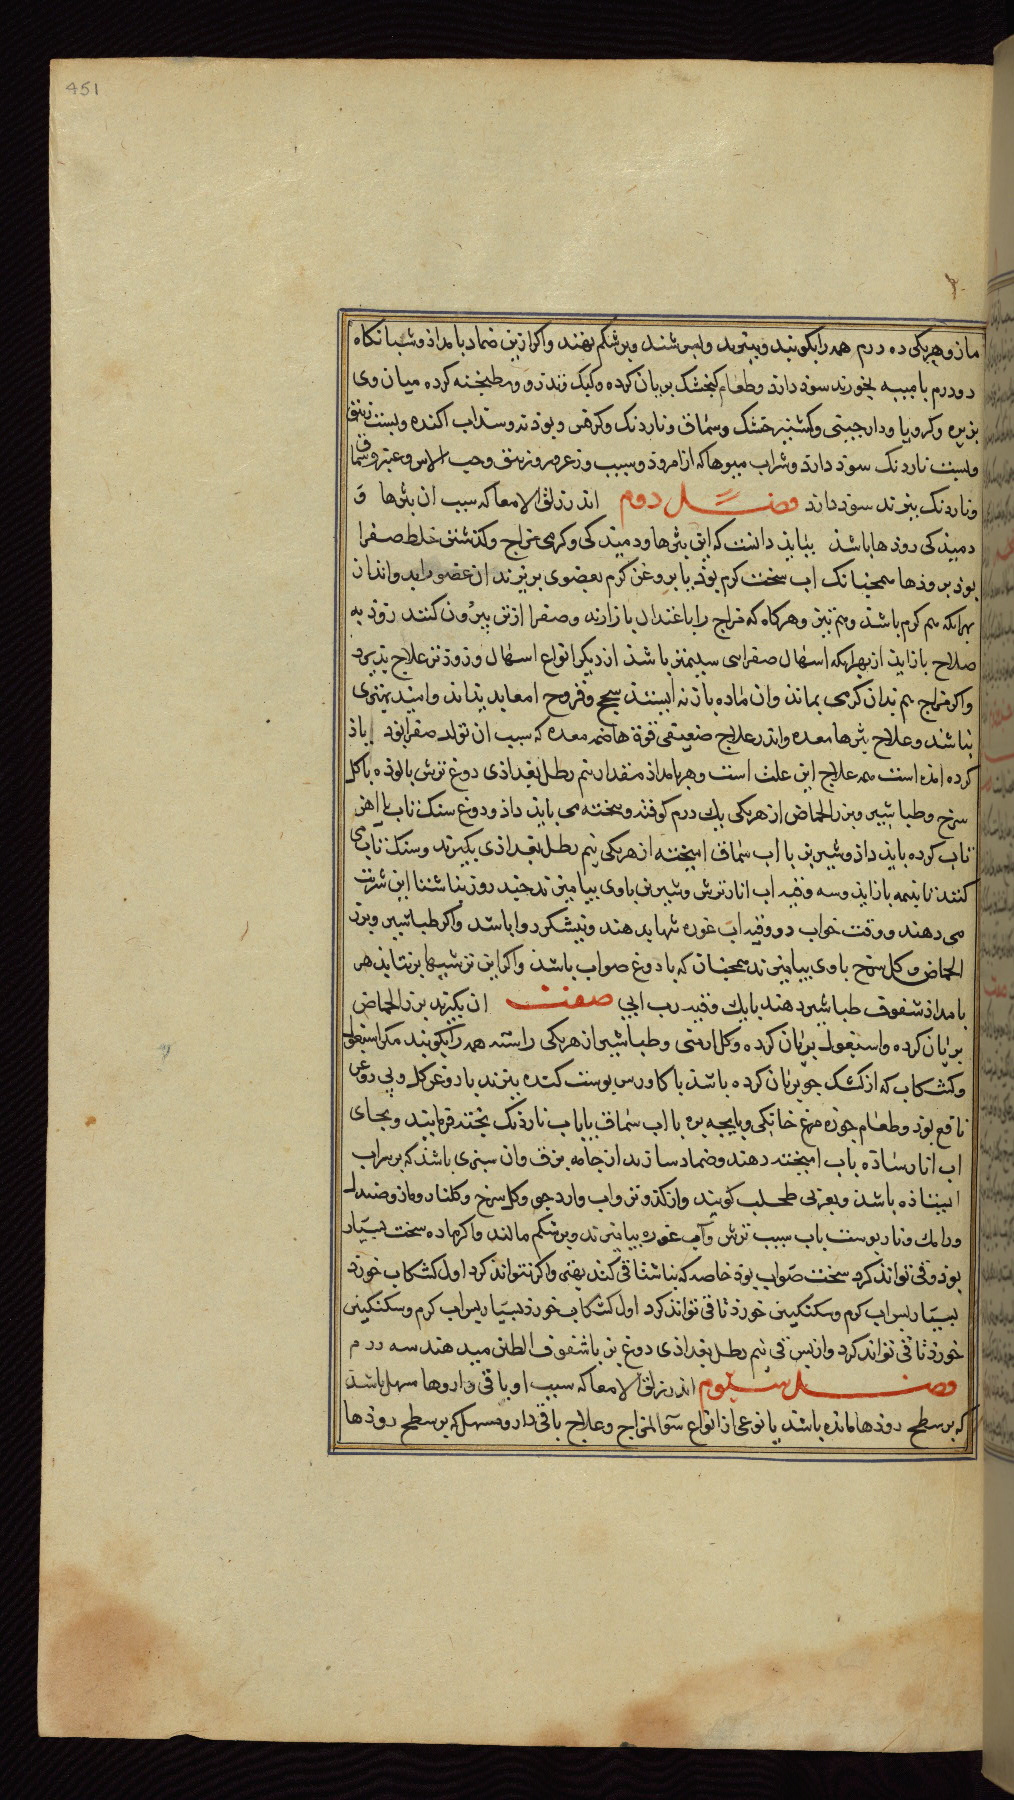 451
مازو هریکی ده درم همه را بکوبند و ببیزند و بسرشند و بر شکم نهند و اکر ازین ضماد بامداذ و شبانکاه
دو درم با میبه بخورند سوذ دارد و طعام کنجشک بریان کرده و کبک و تذرو و مطبخنه کرده میان وی
بزیره و کرویا و دارچینی و کشنیز خشک و سماق و ناردنک و کرفس و بوذنه و سداب اکنده و بست
و بست ناردنک سوذ دارد و شراب میوها که از امروذ و سیب و زعرور و حب الاس و غبیرو سماق
و ناردنک بپزند سوذ دارد فصل دوم اندر زلق الامعا که سبب ان بثرها و
دمیذکی روذها باشذ ببایذ دانست که این بثرها و دمیذکی و کرمی مزاج و کذشتن خلط صفرا
بوذ بروذها همچنانک اب سخت کرم بوذ یا بروغن کرم بعضوی برریزند ان عضو براید و اندان
بهرانکه هم کرم باشذ و هم تیز و هرکاه که مزاج را باعتدال بازارند و صفرا ازتن بیرون کنند زوذ به
صلاح بازایذ از بهرانکه اسهال صفرایی سلیمتر باشذ از دیکر انواع اسهال و زوذتر علاج پذیرد
و اکر مزاج هم بدان کرمی بماند و ان ماده باز نه ایستد سحج و قروح امعا پدید اند و امید بهتری
نباشد و علاج بثرها معده و اندر علاج ضعیفی قوة هاضمه معده که سبب ان تولد صفرا بوذ یاذ
کرده امده است همه علاج این علت است و هر بامداذ مقدار نیم رطل بغداذی دوغ ترش بالوذه با کل
سرخ و طباشیر و بزر الحماض از هریکی یک درم کوفته و بیخته می بایذ داذ و دوغ سنک تاب یا اهن
تاب کرده بایذ داذ و شیرین با اب سماق امیخته از هریکی نیم رطل بغداذی بکیرند و سنک تاب می
کنند تا بنیمه بازاید و سه وقیه اب انار ترش و شیرین باوی بیامیزند چند روز بناشتا این شربت
می دهند و وقت خواب دو وقیه اب غوره تنها بدهند و نیشکر روا باشد و اکر طباشیر و بزر
الحماض و کل سرخ باوی بیامیزند همچنان که با دوغ صواب باشذ و اکر این ترشیها برنتابذ هر
بامداذ سفوف طباشیر دهند با یک وقیه رب ابی صفت ان بکیرند بزر الحماض
بریان کرده و اسبغول بریان کرده و کل ارمنی و طباشیر از هریکی راسته همه را بکوبند مکر اسبغول
و کشکاب که از کشک جو بریان کرده باشذ با کاورس پوست کنده بپزند با روغن کل و بی روغن
نافع بوذ و طعام جوزه مرغ خانکی و پایچه بره با اب سماق یا باب ناردنک پخته فرمایند و بجای
اب انار ساذه باب امیخته دهند و ضماد سازند از جامه بزق و ان سبزی باشذ که بر سر اب
ایستاذه باشذ و بعربی طحلب کویند و از کذوی تر و اب وارد جو و کل سرخ و کلنار و ماز و صندل
و رامک و نار پوست باب سیب ترش و آب غوره بیامیزند و بر شکم مالند و اکر ماده سخت بسیار
بوذ و قی تواند کرد سخت صواب بوذ خاصه که بناشتا قی کند یعنی و اکر نتواند کرد اول کشکاب خورد
بسیار پس اب کرم و سکنکبین خورذ تا قی تواند کرد اول کشکاب خورذ بسیار پس اب کرم و سکنکبین
خورذ تا قی تواند کرد و از پس قی نیم رطل بغداذی دوغ تر با سفوف الطین میدهند سه درم
فصل سیوم اندر زلق الامعا که سبب او باقی داروها مسهل باشذ
که بر سطح روذها مانده باشذ یا نوعی از انواع سو المزاج و علاج باقی دارو مسهل که بر سطح روذها